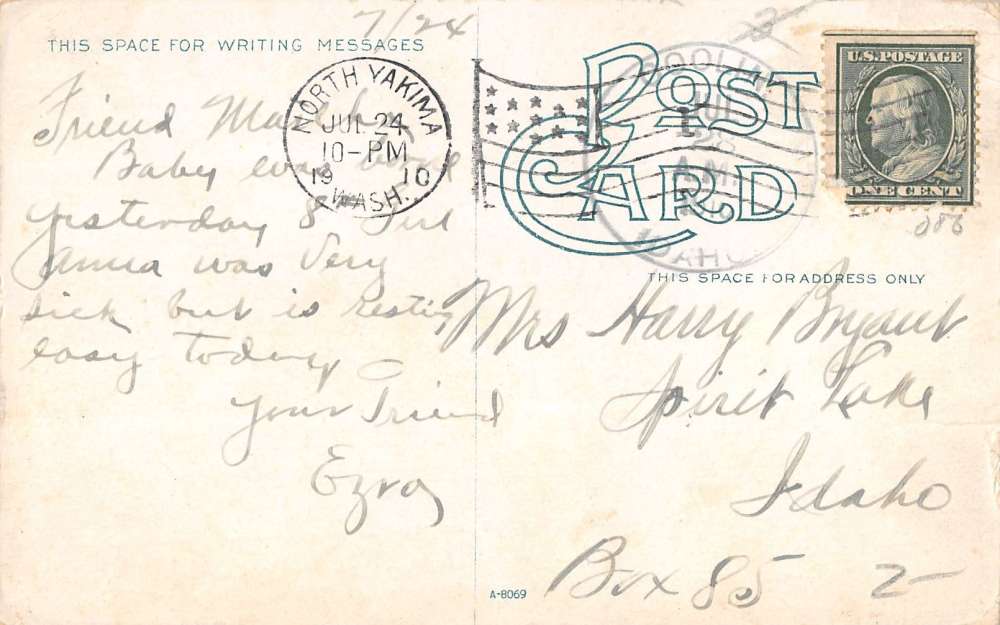 7/24
THIS SPACE FOR WRITING MESSAGES
NORTH YAKIMA
JUL 24
10-PM
19 10
WASH.
POST
CARD
U.S. POSTAGE
ONE CENT
A.M.
IDAHO
THIS SPACE FOR ADDRESS ONLY
Friend
Baby was
yesterday 8
Anna was Very
sick but is resting
easy today
your Friend
Ezra
Mrs Harry Bryant
Spirit Lake
Idaho
Box 85
2
A-8069